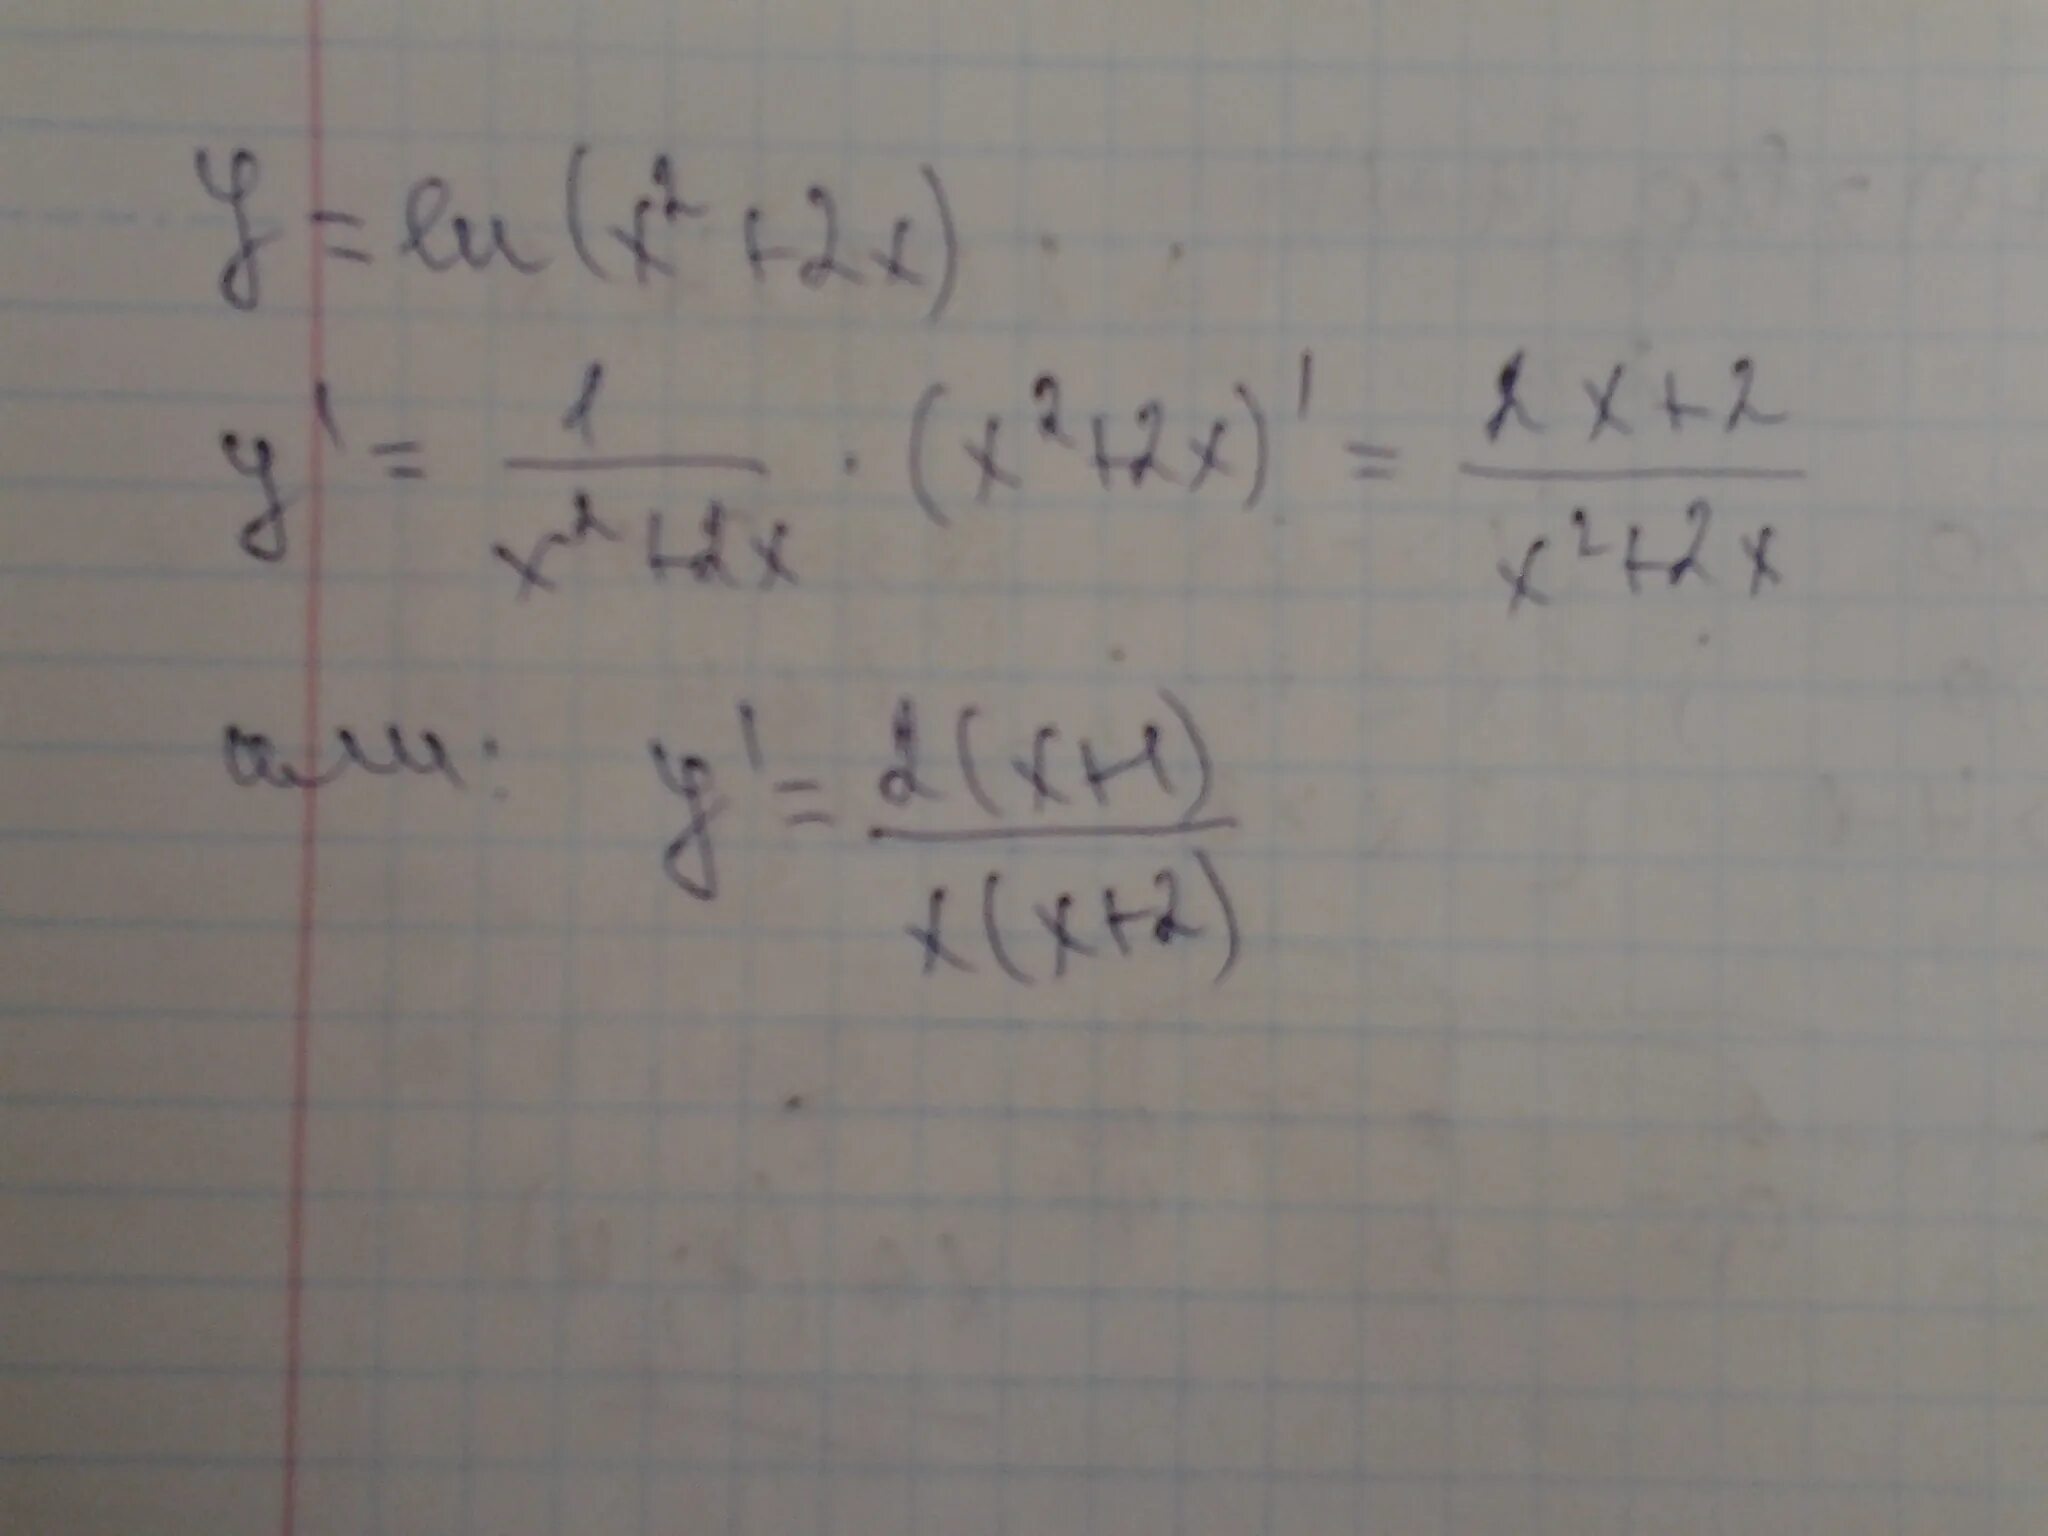 y = ln(x² + 2x)
y' = 1/(x² + 2x) · (x² + 2x)' = (2x + 2)/(x² + 2x)
или: y' = 2(x+1)/(x(x+2))